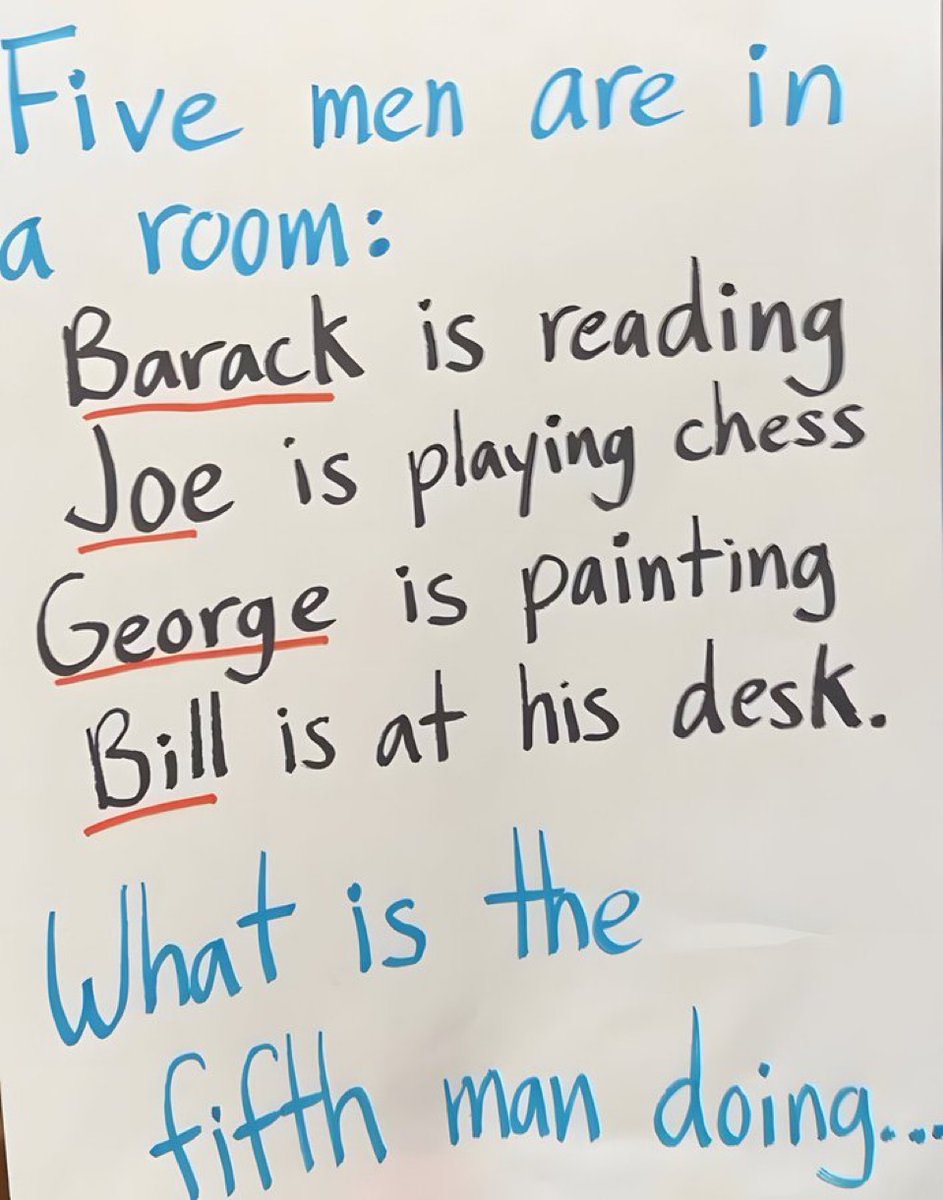 Five men are in
a room:
Barack is reading
Joe is playing chess
George is painting
Bill is at his desk.
What is the
fifth man doing...